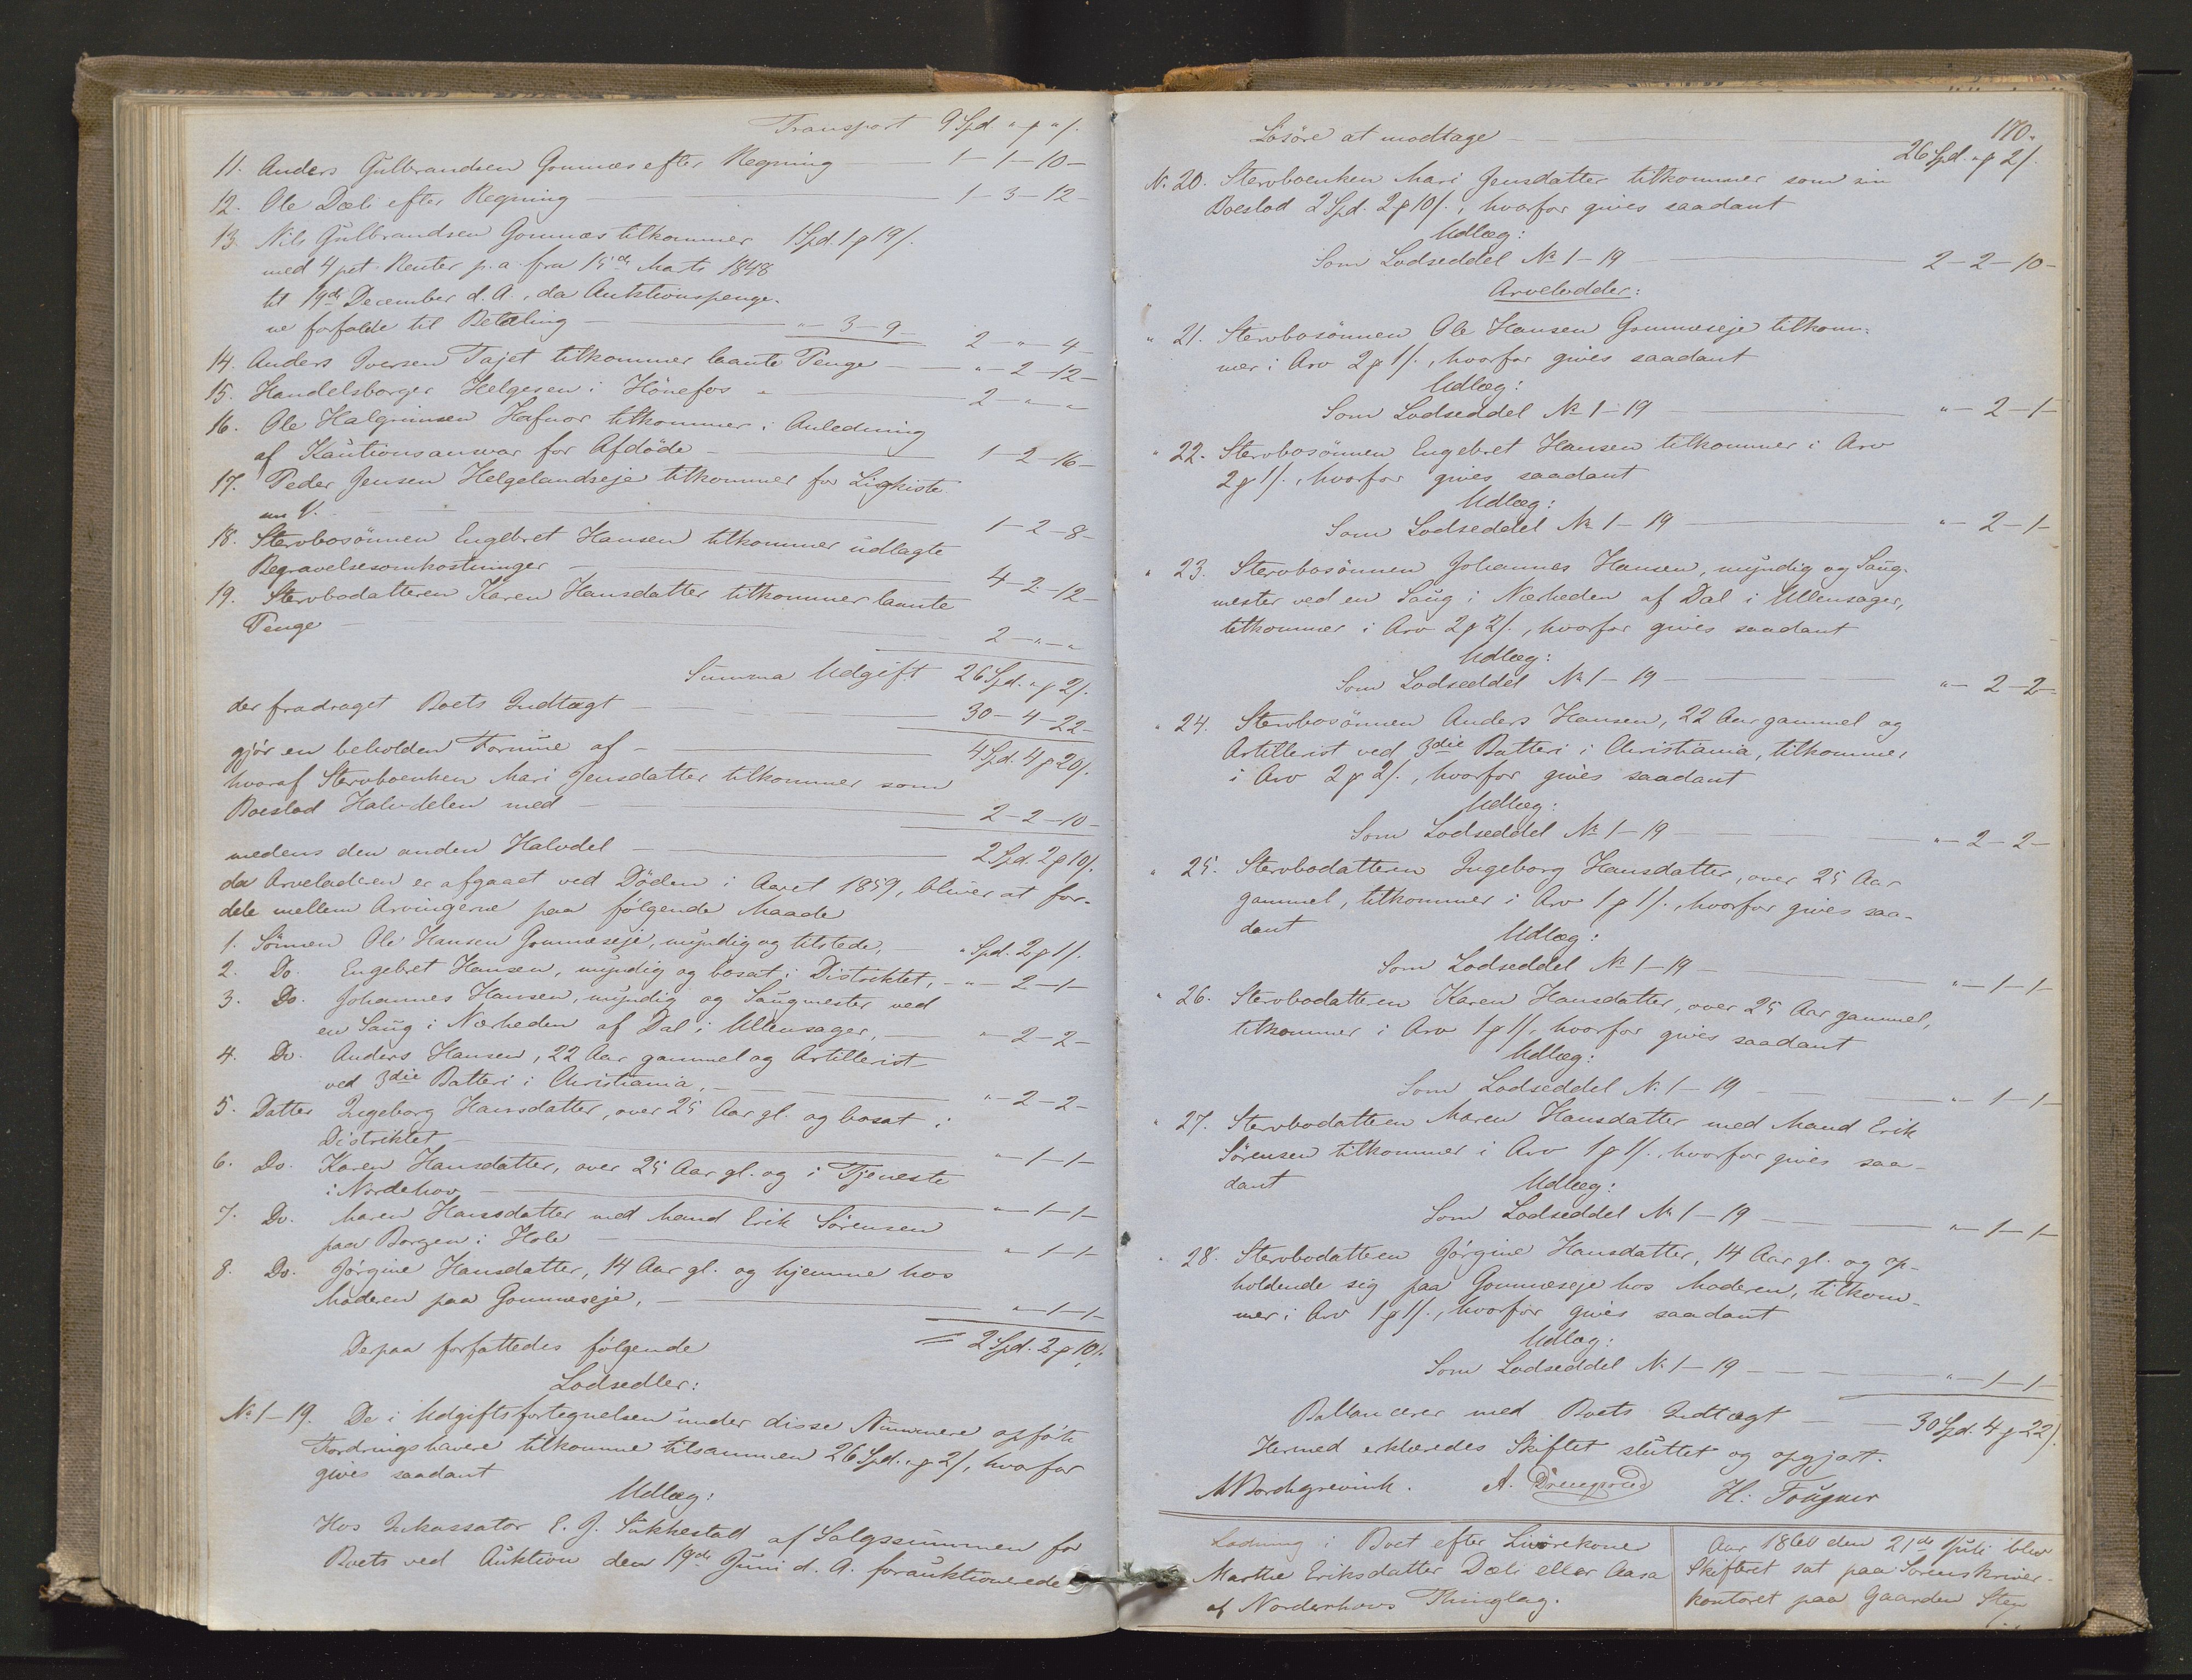 Transport 9 Spd. " ƥ " /.
11. Anders Gulbrandsen Gomnæs efter Regning — 1 - 1 - 10 -
12. Ole Dæli efter Regning — 1 - 3 - 12 -
13. Nils Gulbrandsen Gomnæs tilkommer 1 Spd. 1 ƥ 19 /.
med 4 pct. Renter p. a. fra 15de Marts 1848
til 19de December d. A., da Auktionspenge-
ne forfalde til Betaling — " - 3 - 9 — 2 - " - 4 -
14. Anders Iversen Tajet tilkommer laante Penge — " - 2 - 12 -
15. Handelsborger Helgesen i Hönefos " — 2 - " - "
16. Ole Halgrimsen Hafnor tilkommer i Anledning
af Kautionsansvar for Afdöde — 1 - 2 - 16 -
17. Peder Jensen Helgelandseje tilkommer for Ligkiste
m. V. — 1 - 2 - 8 -
18. Stervbosönnen Engebret Hansen tilkommer udlagte
Begravelsesomkostninger — 4 - 2 - 12 -
19. Stervbodatteren Karen Hansdatter tilkommer laante
Penge — 2 - " - "
Summa Udgift 26 Spd. " ƥ 2 /.
der fradraget Boets Indtægt — 30 - 4 - 22 -
gjör en beholden Formue af — 4 Spd. 4 ƥ 20 /.
hvoraf Stervboenken Mari Jensdatter tilkommer som
Boeslod Halvdelen med — 2 - 2 - 10 -
medens den anden Halvdel — 2 Spd. 2 ƥ 10 /.
da Arveladeren er afgaaet ved Döden i Aaret 1859, bliver at for-
dele mellem Arvingerne paa fölgende Maade
1. Sönnen Ole Hansen Gomnæseje, myndig og tilstede, — " Spd. 2 ƥ 1 /.
2. Do. Engebret Hansen, myndig og bosat i Distriktet, — " - 2 - 1 -
3. Do. Johannes Hansen, myndig og Saugmester ved
en Saug i Nærheden af Dal i Ullensager, — " - 2 - 2 -
4. Do. Anders Hansen, 22 Aar gammel og Artillerist
ved 3die Batteri i Christiania, — " - 2 - 2 -
5. Datter Ingeborg Hansdatter, over 25 Aar gl. og bosat i
Distriktet — " - 1 - 1 -
6. Do. Karen Hansdatter, over 25 Aar gl. og i Tjeneste
i Nordehov — " - 1 - 1 -
7. Do. Maren Hansdatter med Mand Erik Sörensen
paa Borgen i Hole — " - 1 - 1 -
8. Do. Jörgine Hansdatter, 14 Aar gl. og hjemme hos
Moderen paa Gomnæseje, — " - 1 - 1 -
= 2 Spd. 2 ƥ 10 /.
Derpaa forfattedes fölgende
Lodsedler:
No 1 - 19. De i Udgiftsfortegnelsen under disse Nummere opförte
Fordringshavere tilkomme tilsammen 26 Spd. " ƥ 2 /, hvorfor
gives saadant
Udlæg:
Hos Inkassator E. J. Sukkestad af Salgssummen for
Boets ved Auktion den 19de Juni d. A. forauktionerede
170.
Lösöre at modtage — 26 Spd. " ƥ 2 /.
No. 20. Stervboenken Mari Jensdatter tilkommer som sin
Boeslod 2 Spd. 2 ƥ 10 /., hvorfor gives saadant
Udlæg:
Som Lodseddel No 1 - 19 — 2 - 2 - 10 -
Arvelodder:
" 21. Stervbosönnen Ole Hansen Gomnæseje tilkom-
mer i Arv 2 ƥ 1 /., hvorfor gives saadant
Udlæg:
Som Lodseddel No 1 - 19 — " - 2 - 1 -
" 22. Stervbosönnen Engebret Hansen tilkommer i Arv
2 ƥ 1 /., hvorfor gives saadant
Udlæg:
Som Lodseddel No 1 - 19 — " - 2 - 1 -
" 23. Stervbosönnen Johannes Hansen, myndig og Saug-
mester ved en Saug i Nærheden af Dal i Ullensager,
tilkommer i Arv 2 ƥ 2 /., hvorfor gives saadant
Udlæg:
Som Lodseddel No 1 - 19 — " - 2 - 2 -
" 24. Stervbosönnen Anders Hansen, 22 Aar gammel og
Artillerist ved 3die Batteri i Christiania, tilkommer
i Arv 2 ƥ 2 /., hvorfor gives saadant
Udlæg:
Som Lodseddel No 1 - 19 — " - 2 - 2 -
" 25. Stervbodatteren Ingeborg Hansdatter, over 25 Aar
gammel, tilkommer i Arv 1 ƥ 1 /., hvorfor gives saa-
dant
Udlæg:
Som Lodseddel No 1 - 19 — " - 1 - 1 -
" 26. Stervbodatteren Karen Hansdatter, over 25 Aar gammel,
tilkommer i Arv 1 ƥ 1 /, hvorfor gives saadant
Udlæg:
Som Lodseddel No 1 - 19 — " - 1 - 1 -
" 27. Stervbodatteren Maren Hansdatter med Mand Erik
Sörensen tilkommer i Arv 1 ƥ 1 /., hvorfor gives saa-
dant
Udlæg:
Som Lodseddel No 1 - 19 — " - 1 - 1 -
" 28. Stervbodatteren Jörgine Hansdatter, 14 Aar gl. og op-
holdende sig paa Gomnæseje hos Moderen, tilkom-
mer i Arv 1 ƥ 1 /., hvorfor gives saadant
Udlæg:
Som Lodseddel No 1 - 19 — " - 1 - 1 -
Ballancerer med Boets Indtægt — 30 Spd. 4 ƥ 22 /.
Hermed erklæredes Skiftet sluttet og opgjort.
M Borchgrevink. A. H: Tougner
Ladning i Boet efter Livörekone
Marthe Eriksdatter Dæli eller Aasa
af Norderhovs Thinglag.
Aar 1860 den 21de Juli blev
Skifteret sat paa Sorenskriver-
kontoret paa Gaarden Sten